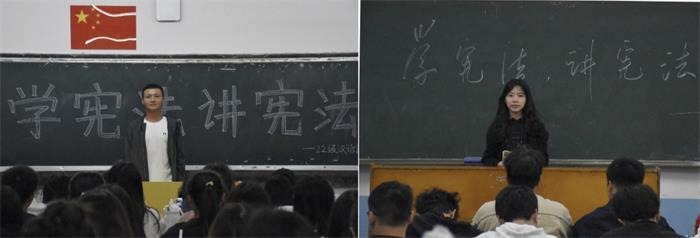 学宪法讲宪法
——22级汉语
学宪法,讲宪法